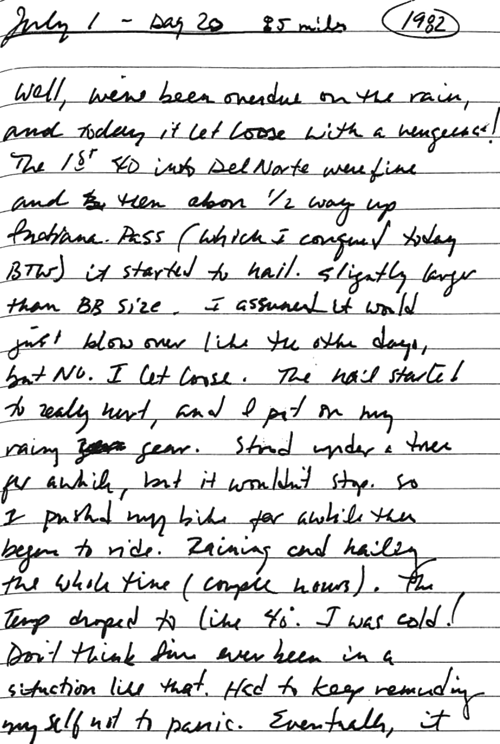 July 1 - Day 20 85 miles 1982
Well, we've been overdue on the rain,
and today it let loose with a vengeance!
The 1st 40 into Del Norte were fine
and then about 1/2 way up
Indiana. Pass (which I conquered today
BTW) it started to hail. Slightly larger
than BB size. I assumed it would
just blow over like the other days,
but No. I let loose. The hail started
to really hurt, and I put on my
rainy gear. Stood under a tree
for awhile, but it wouldn't stop. So
I pushed my bike for awhile then
began to ride. Raining and hailing
the whole time (couple hours). The
Temp droped to like 40°. I was cold!
Don't think I've ever been in a
situation like that. Had to keep reminding
myself not to panic. Eventually, it